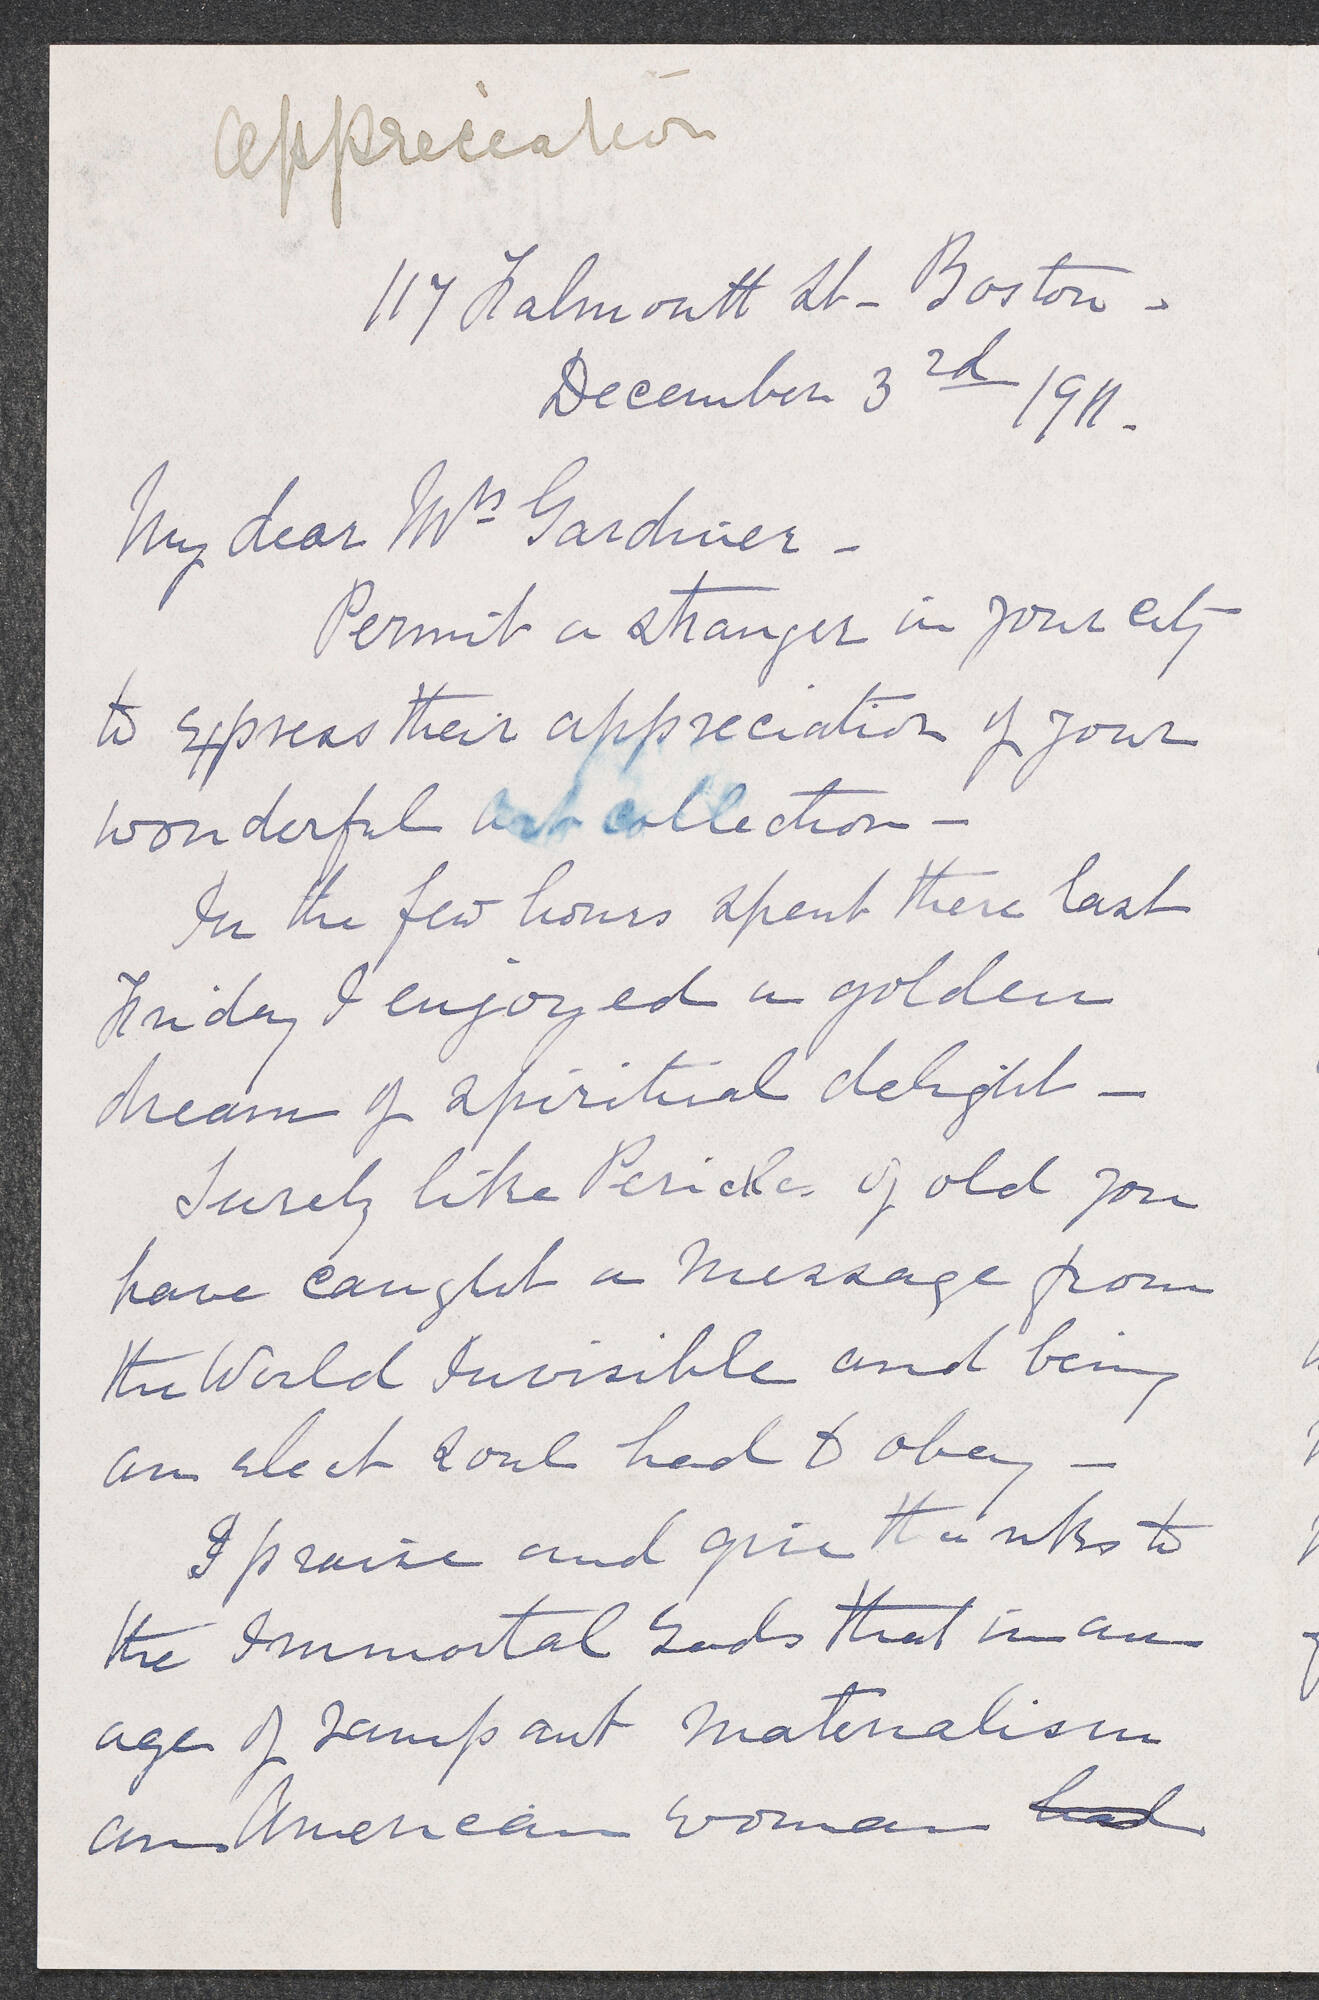 Appreciation
117 Falmouth St - Boston -
December 3rd 1911.
My dear Mrs Gardiner -
Permit a stranger in your city
to express their appreciation of your
wonderful art collection -
In the few hours spent there last
Friday I enjoyed a golden
dream of spiritual delight -
Surely like Pericles of old you
have caught a message from
the World Invisible and being
an elect soul had to obey -
I praise and give thanks to
the Immortal Gods that in an
age of rampant materialism
an American woman had